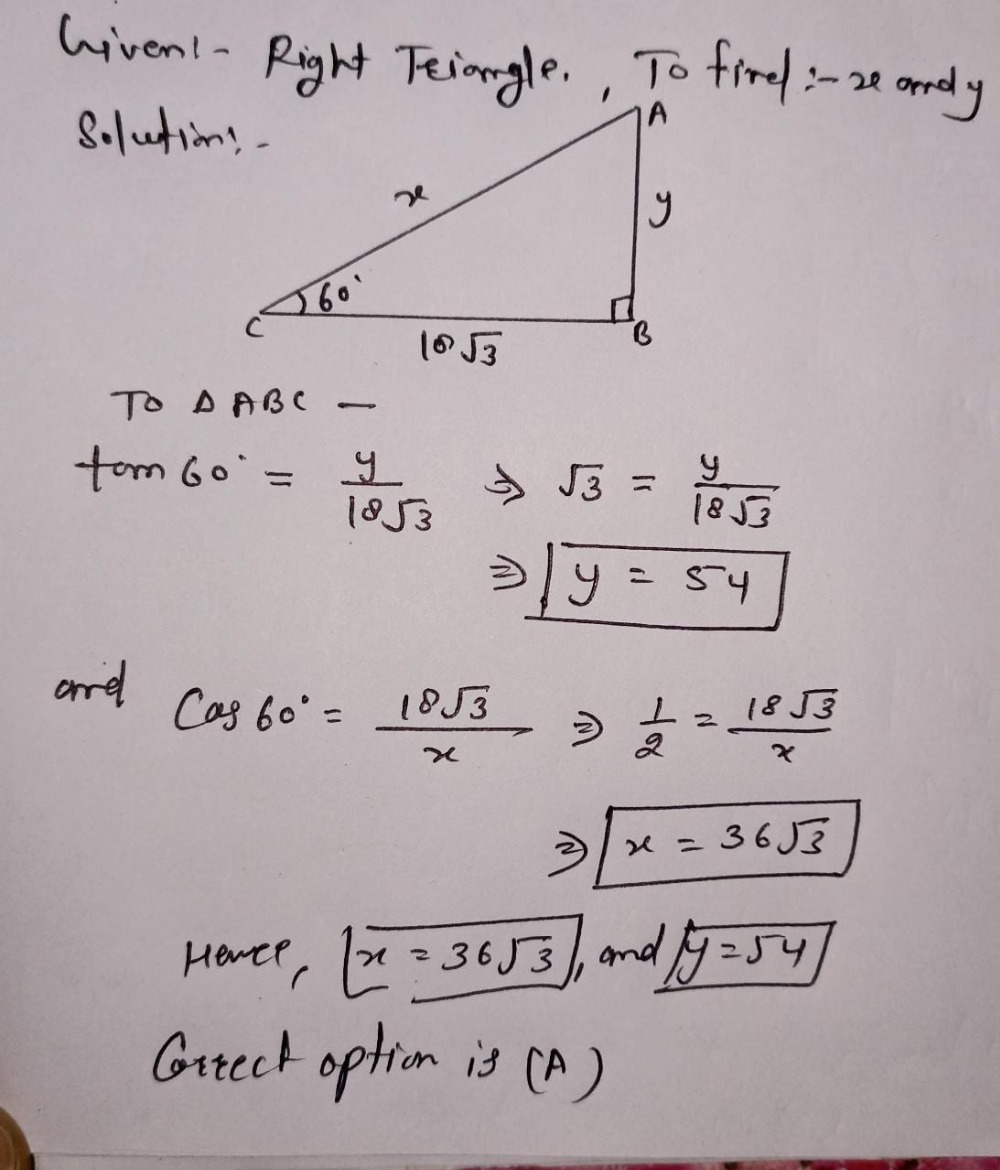 Given:- Right Triangle. , To find :- x and y
Solution:-
A
x
y
60°
C
B
18√3
TO Δ ABC —
tan 60° = y/18√3 ⇒ √3 = y/18√3
⇒ y = 54
and Cos 60° = 18√3/x ⇒ 1/2 = 18√3/x
⇒ x = 36√3
Hence, x = 36√3, and y = 54
Correct option is (A)